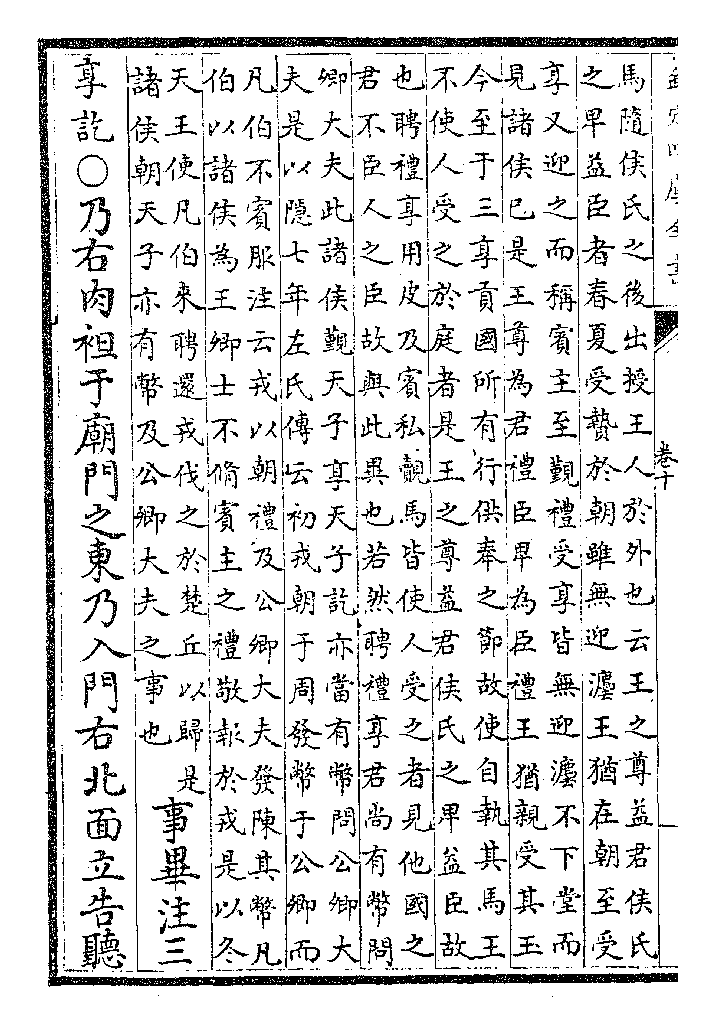 卷十
馬隨侯氏之後出授王人於外也云王之尊益君侯氏
之卑益臣者春夏受贄於朝雖無迎灋王猶在朝至受
享又迎之而稱賓主至覲禮受享皆無迎灋不下堂而
見諸侯已是王尊為君禮臣卑為臣禮王猶親受其玉
今至于三享貢國所有行供奉之節故使自執其馬王
不使人受之於庭者是王之尊益君侯氏之卑益臣故
也聘禮享用皮及賓私覿馬皆使人受之者見他國之
君不臣人之臣故與此異也若然聘禮享君尚有幣問
卿大夫此諸侯覲天子享天子訖亦當有幣問公卿大
夫是以隱七年左氏傳云初戎朝于周發幣于公卿而
凡伯不賓服注云戎以朝禮及公卿大夫發陳其幣凡
伯以諸侯為王卿士不脩賓主之禮敬報於戎是以冬
天王使凡伯來聘還戎伐之於楚丘以歸是
諸侯朝天子亦有幣及公卿大夫之事也
事畢注三
享訖○乃右肉袒于廟門之東乃入門右北面立告聽